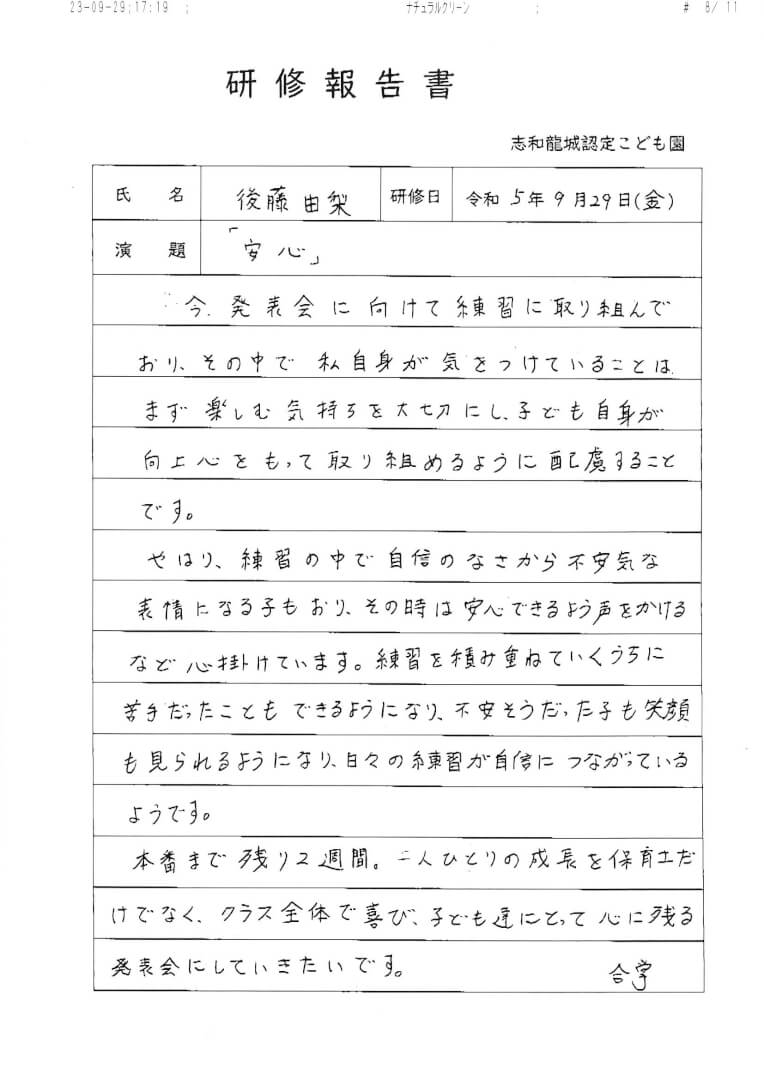 23-09-29;17:19 ; ナチュラルクリーン ; # 8/ 11
研修報告書
志和龍城認定こども園
氏 名 後藤由梨 研修日 令和 5年 9月29日(金)
演 題 「安心」
今、発表会に向けて練習に取り組んで
おり、その中で私自身が気をつけていることは、
まず楽しむ気持ちを大切にし、子ども自身が
向上心をもって取り組めるように配慮すること
です。
やはり、練習の中で自信のなさから不安気な
表情になる子もおり、その時は安心できるよう声をかける
など心掛けています。練習を積み重ねていくうちに
苦手だったこともできるようになり、不安そうだった子も笑顔
も見られるようになり、日々の練習が自信につながっている
ようです。
本番まで残り2週間。一人ひとりの成長を保育士だ
けでなく、クラス全体で喜び、子ども達にとって心に残る
発表会にしていきたいです。 合掌